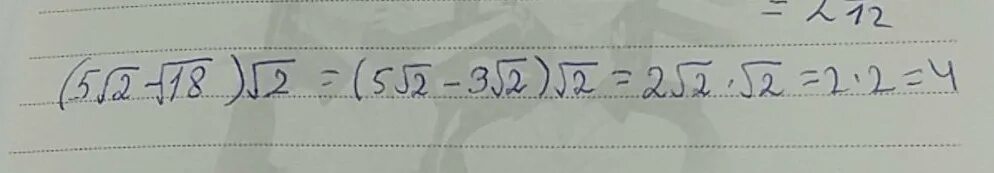 = 2 12
(5√2 - √18)√2 = (5√2 - 3√2)√2 = 2√2 · √2 = 2 · 2 = 4